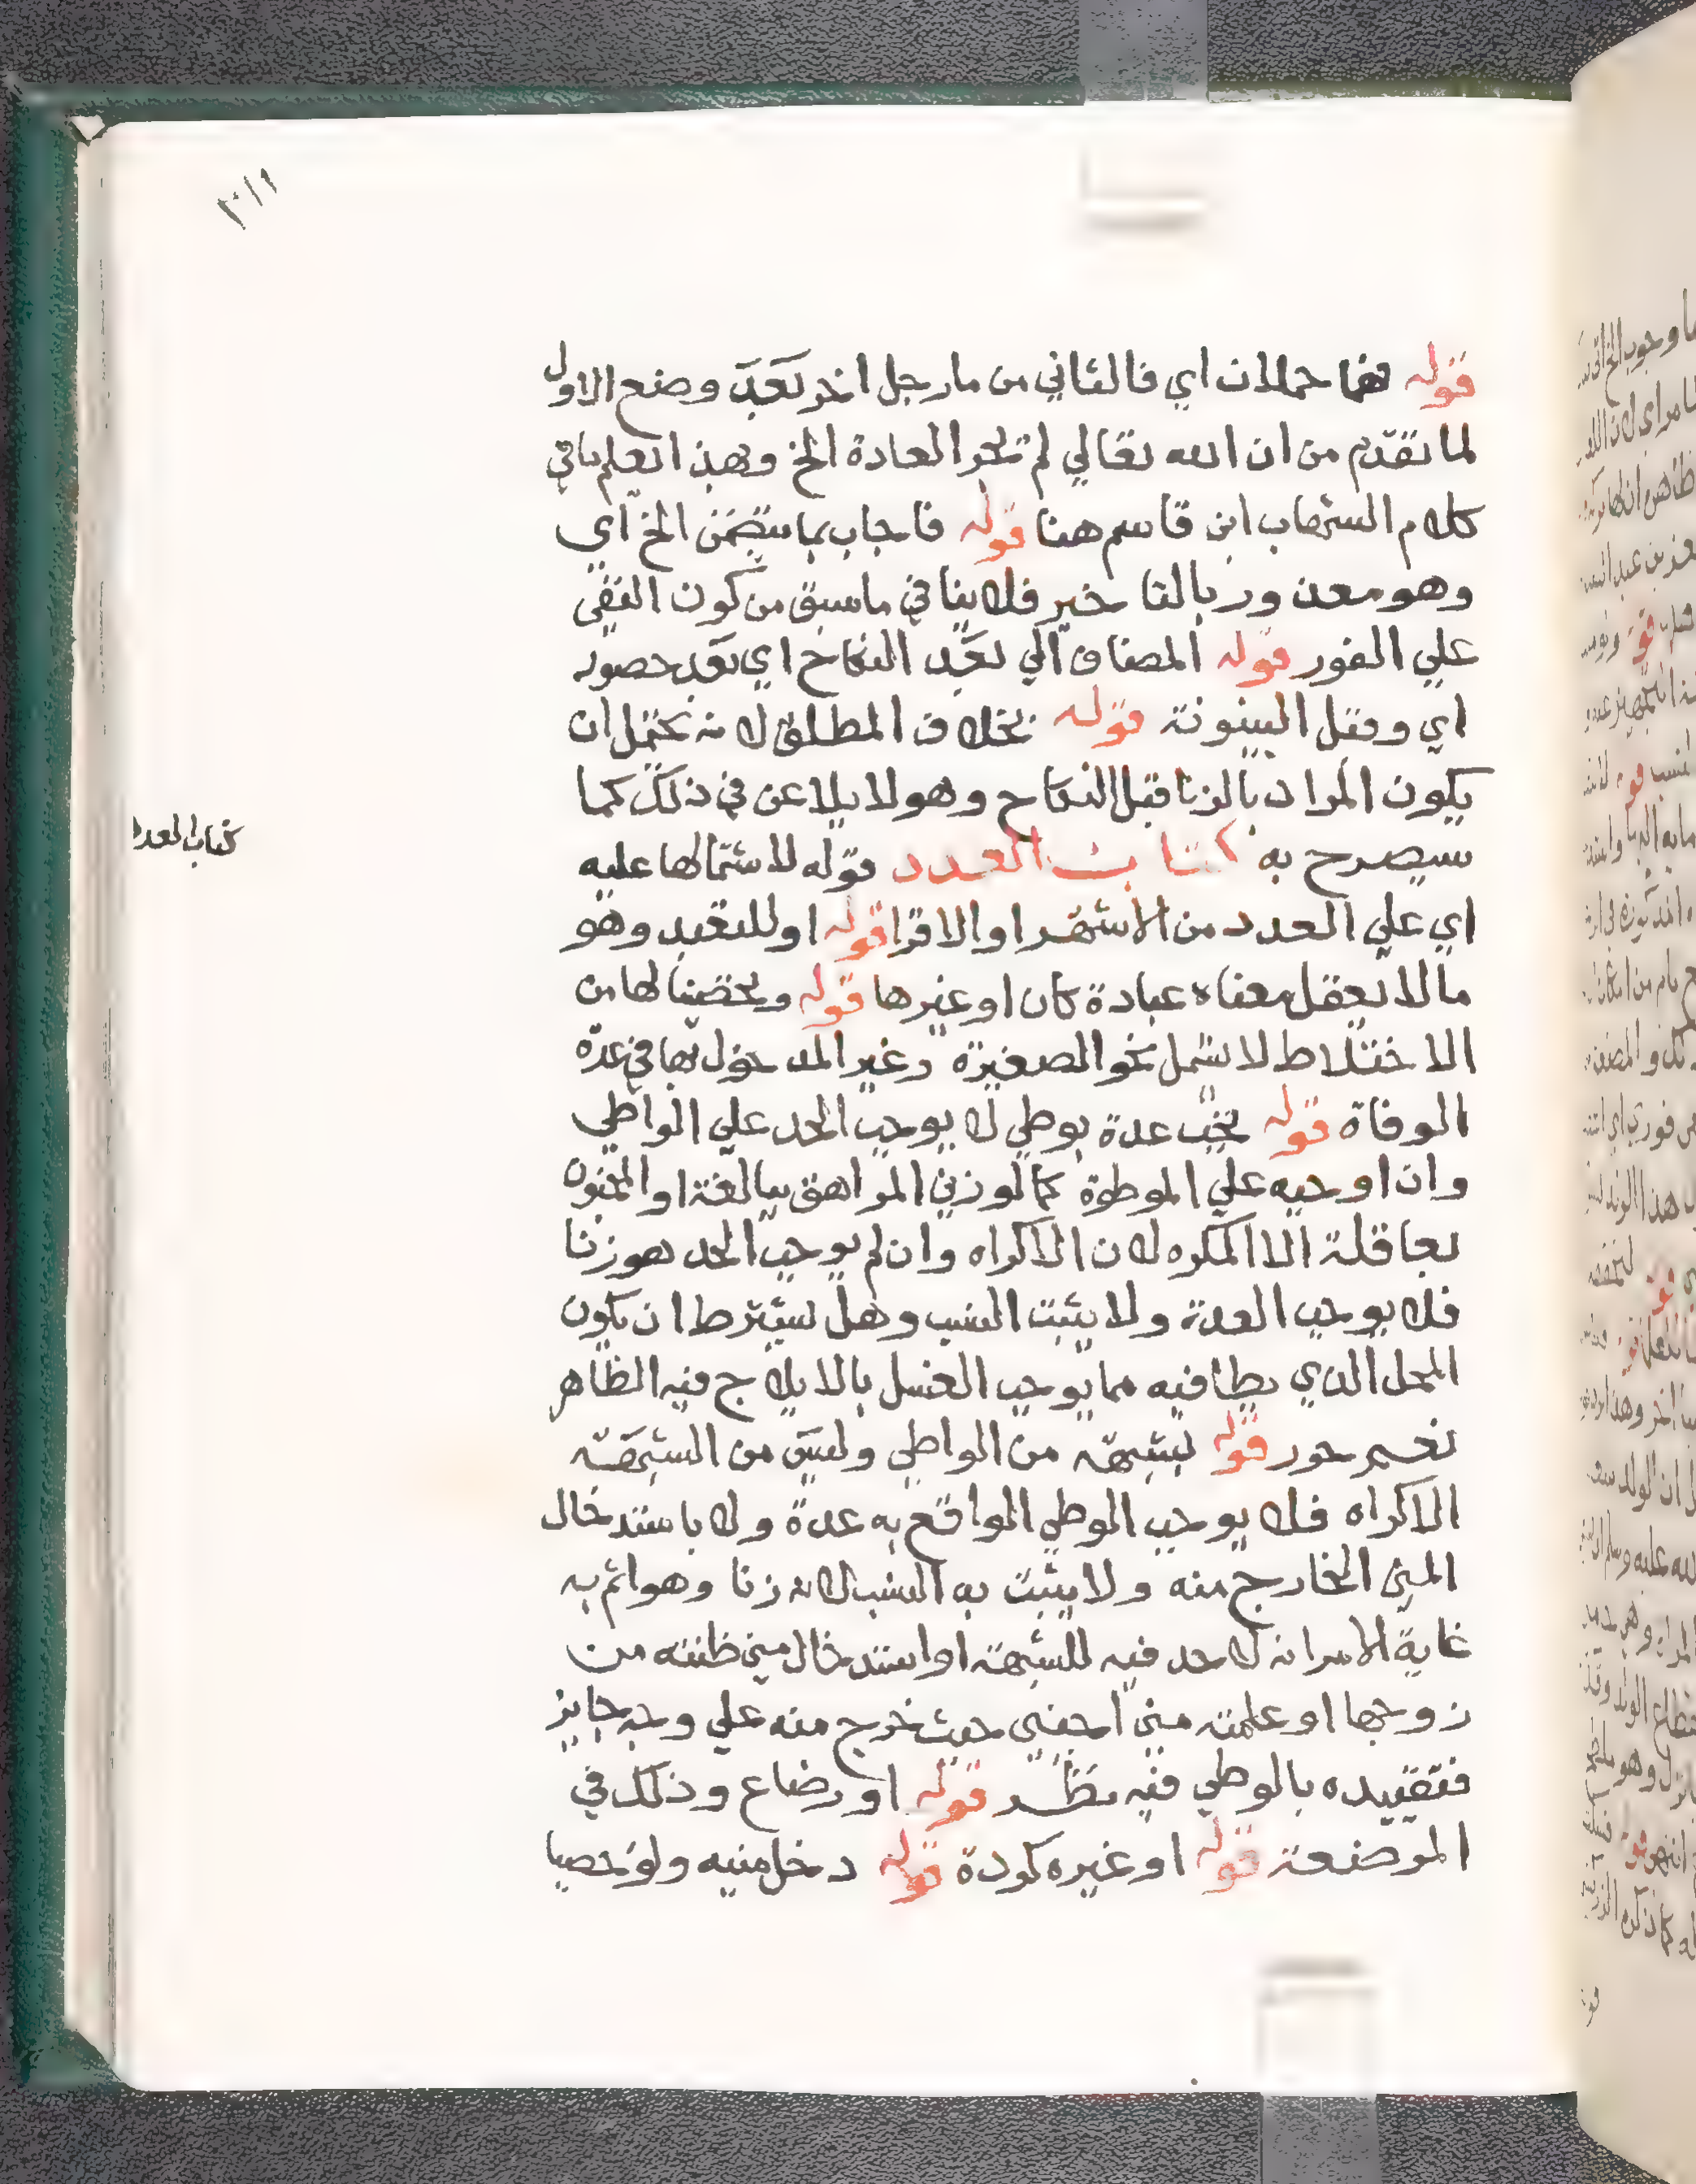 قوله فهما حملان اي فالثاني من ما رجل اخر بعد وضع الاول
لما تقدم من ان الله تعالي لم تجر العادة الخ وبهذا تعلم ما في
كلام الشهاب ابن قاسم هنا قوله فاجاب بما يتضمن الخ اي
وهو معذور بالتاخير فلا ينافي ما سبق من كون النفي
علي الفور قوله المضاف الي بعد النكاح اي بعد حصوله
اي وقبل البينونة قوله بخلاف المطلق لانه يحتمل ان
يكون المراد بالزنا قبل النكاح وهو لا يلاعن في ذلك كما
سيصرح به كتاب العدد قوله لاشتمالها عليه
اي علي العدد من الاشهر او الاقرا قوله او للتعبد وهو
ما لا يعقل معناه عبادة كان او غيرها قوله وتحصينا لها من
الاختلاط لا يشمل نحو الصغيرة وغير المدخول بها في عدة
الوفاة قوله تجب عدة بوطي لا يوجب الحد علي الواطي
وان اوجبه علي الموطوة كما لو زني المراهق ببالغة او المجنون
بعاقلة الا المكره لان الاكراه وان لم يوجب الحد هو زنا
فلا يوجب العدة ولا يثبت النسب وهل يشترط ان يكون
المحل الذي يطا فيه مما يوجب الغسل بالايلاج فيه الظاهر
نعم حرر قوله بشبهة من الواطي وليس من الشبهة
الاكراه فلا يوجب الوطي الواقع به عدة ولا باستدخال
المني الخارج منه ولا يثبت به النسب لانه زنا وهو اثم به
غاية الامر انه لا حد فيه للشبهة او استدخال مني ظنته من
زوجها او علمته مني اجنبي حيث خرج منه علي وجه جايز
فتقييده بالوطي فيه نظر قوله او رضاع وذلك في
المرضعة قوله او غيره كودة قوله دخل منيه ولو خصيا
كتاب العدد